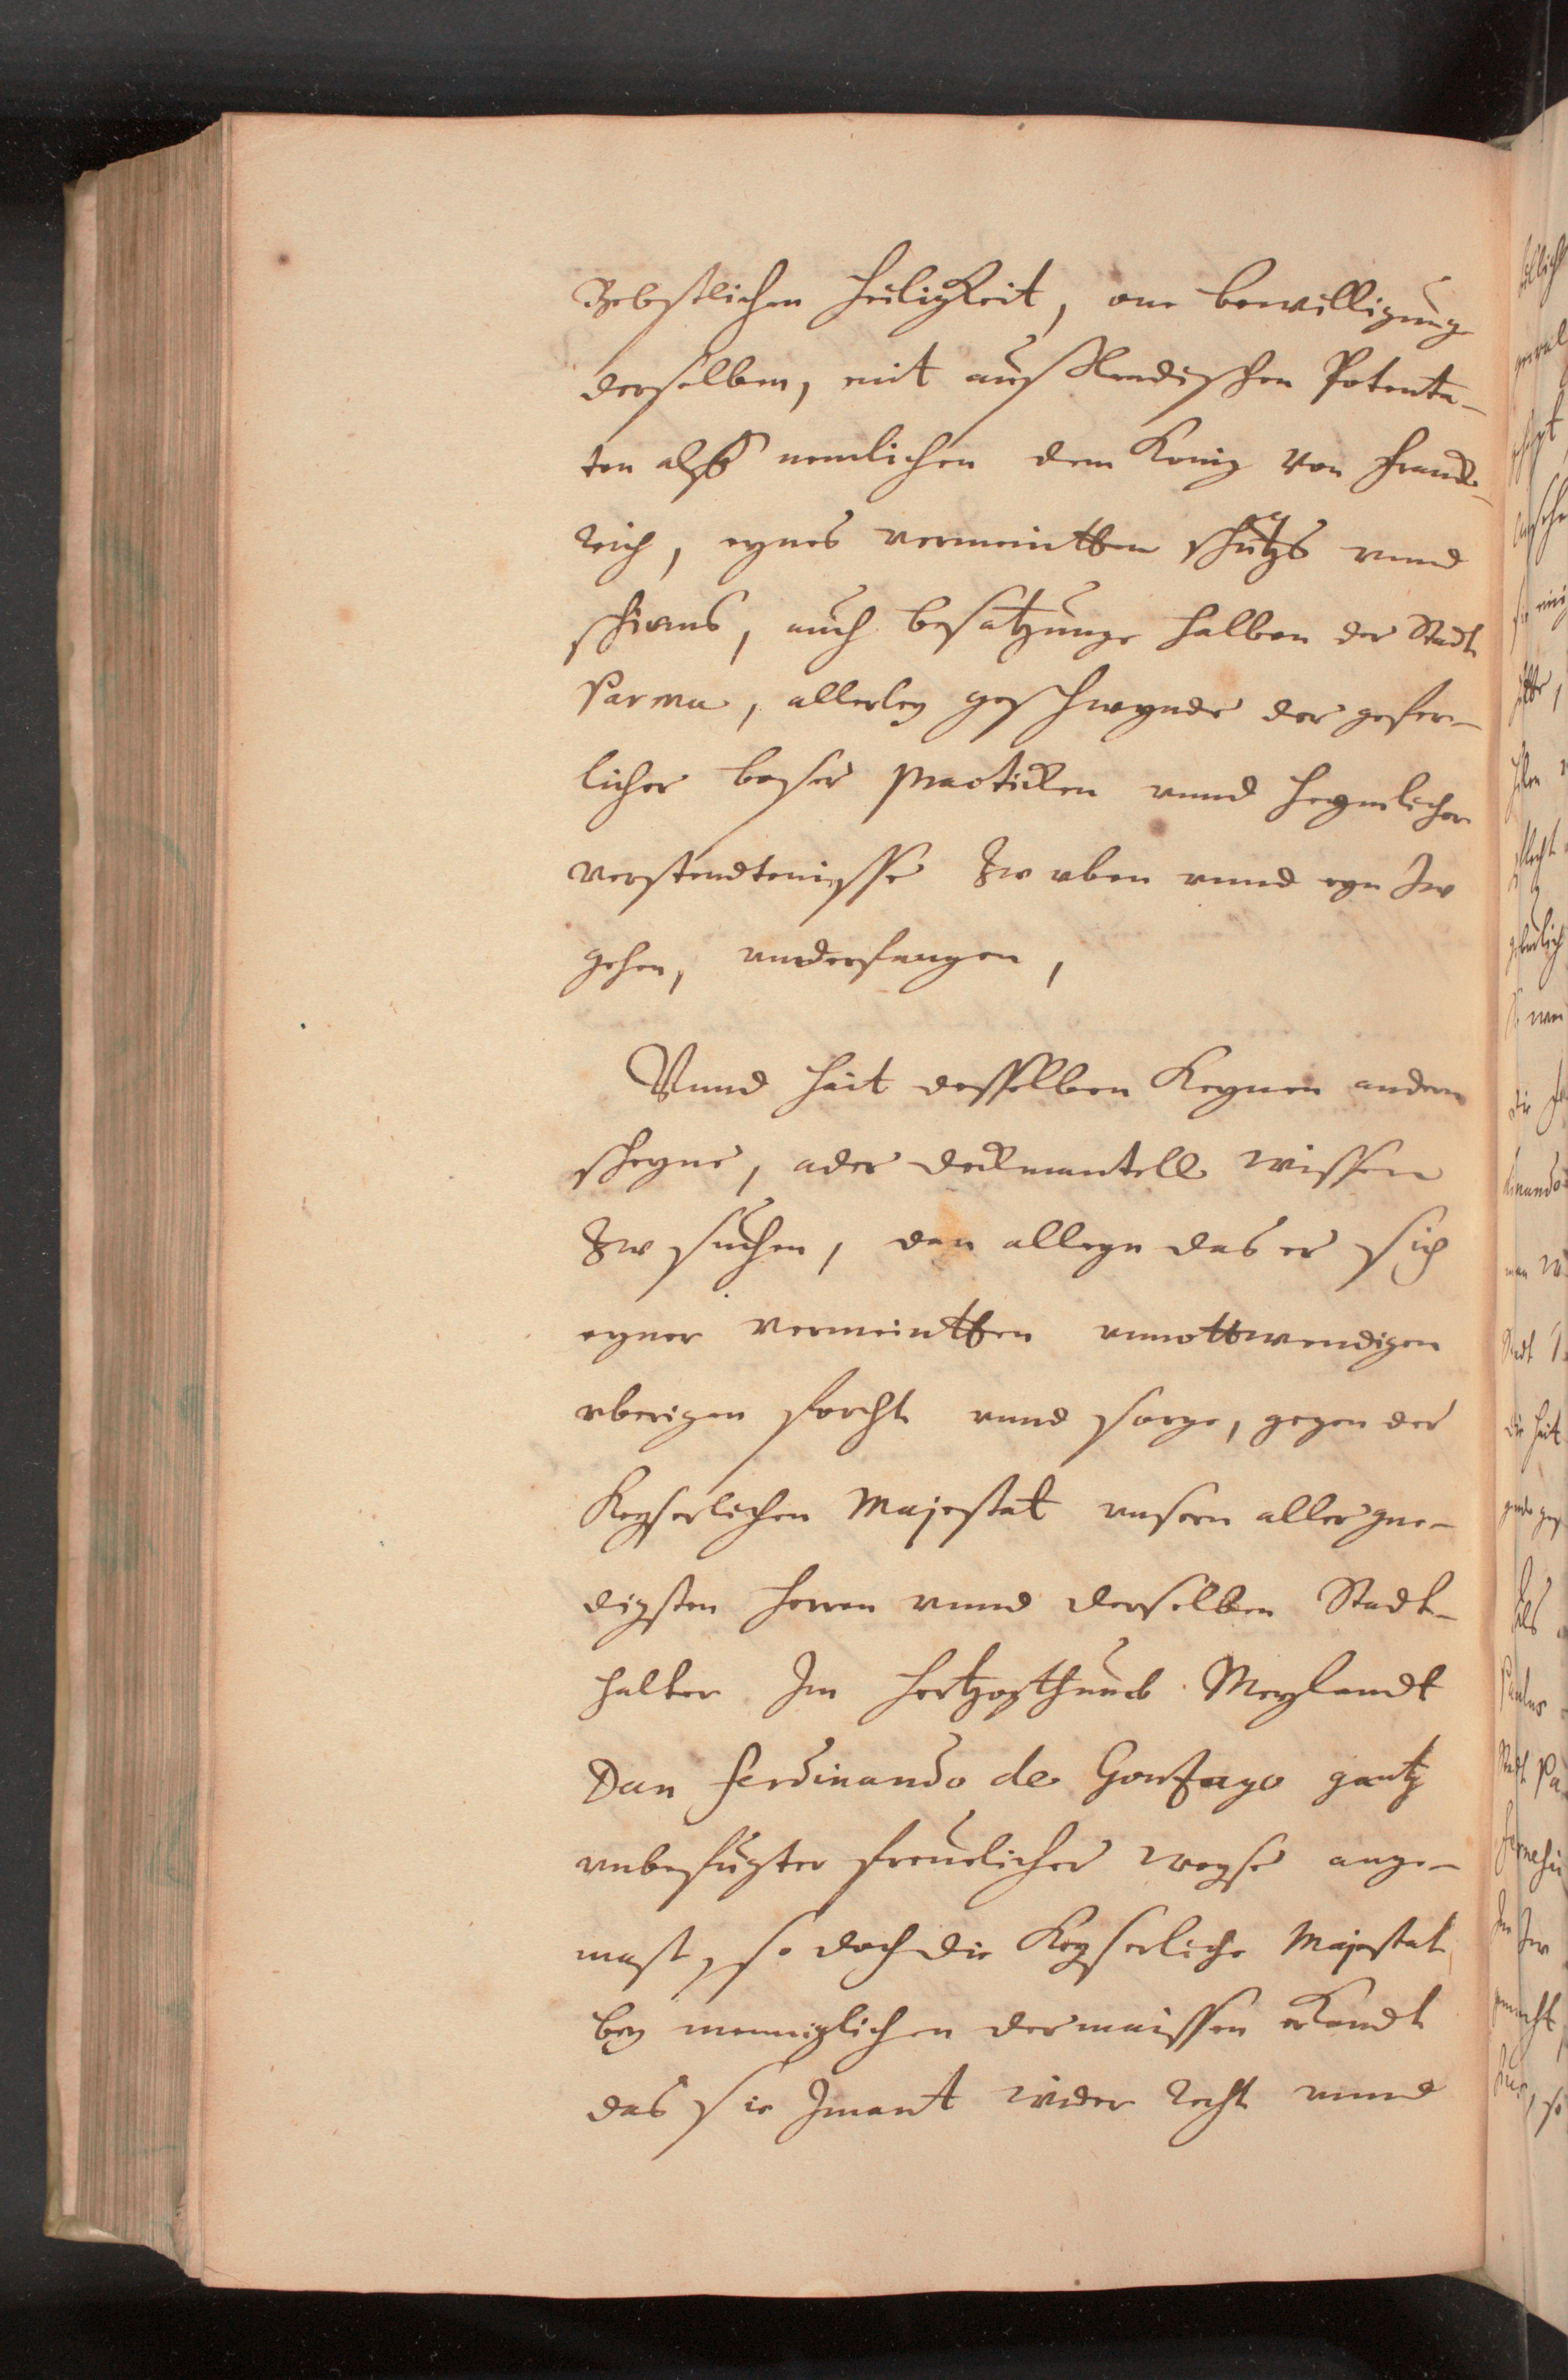 Bebstlichen heiligkeit, one bewilligung
derselben, mit auslendischen Potenta-
ten alß nemlichen dem Konig von Franck-
reich, eynes vermeintten schutz vnnd
schirms, auch besatzunge halben der Stadt
Parma, allerley geschwynde der gefer-
licher boser practicken vnnd heymlicher
verstendtenisse Zw vben vnnd eyn Zw
gehen, vnderfangen,
Vnnd hait desselben keynen andern
scheyne, ader deckmantell wissen
Zw suchen, dan alleyn das er sich
eyner vermeintten vnnottwendigen
vberigen forcht vnnd sorge, gegen der
Keyserlichen Majestat vnsern allergne-
digsten herren vnnd derselben Stadt-
halter Im hertzogthumb Meylandt
Dan Ferdinando de Gonzago gantz
vnbefugter freuelicher weyse ange-
mast, so doch die Keyserliche Majestat
bey menniglichen dermaissen erkandt
das sie Jmant wider recht vnnd